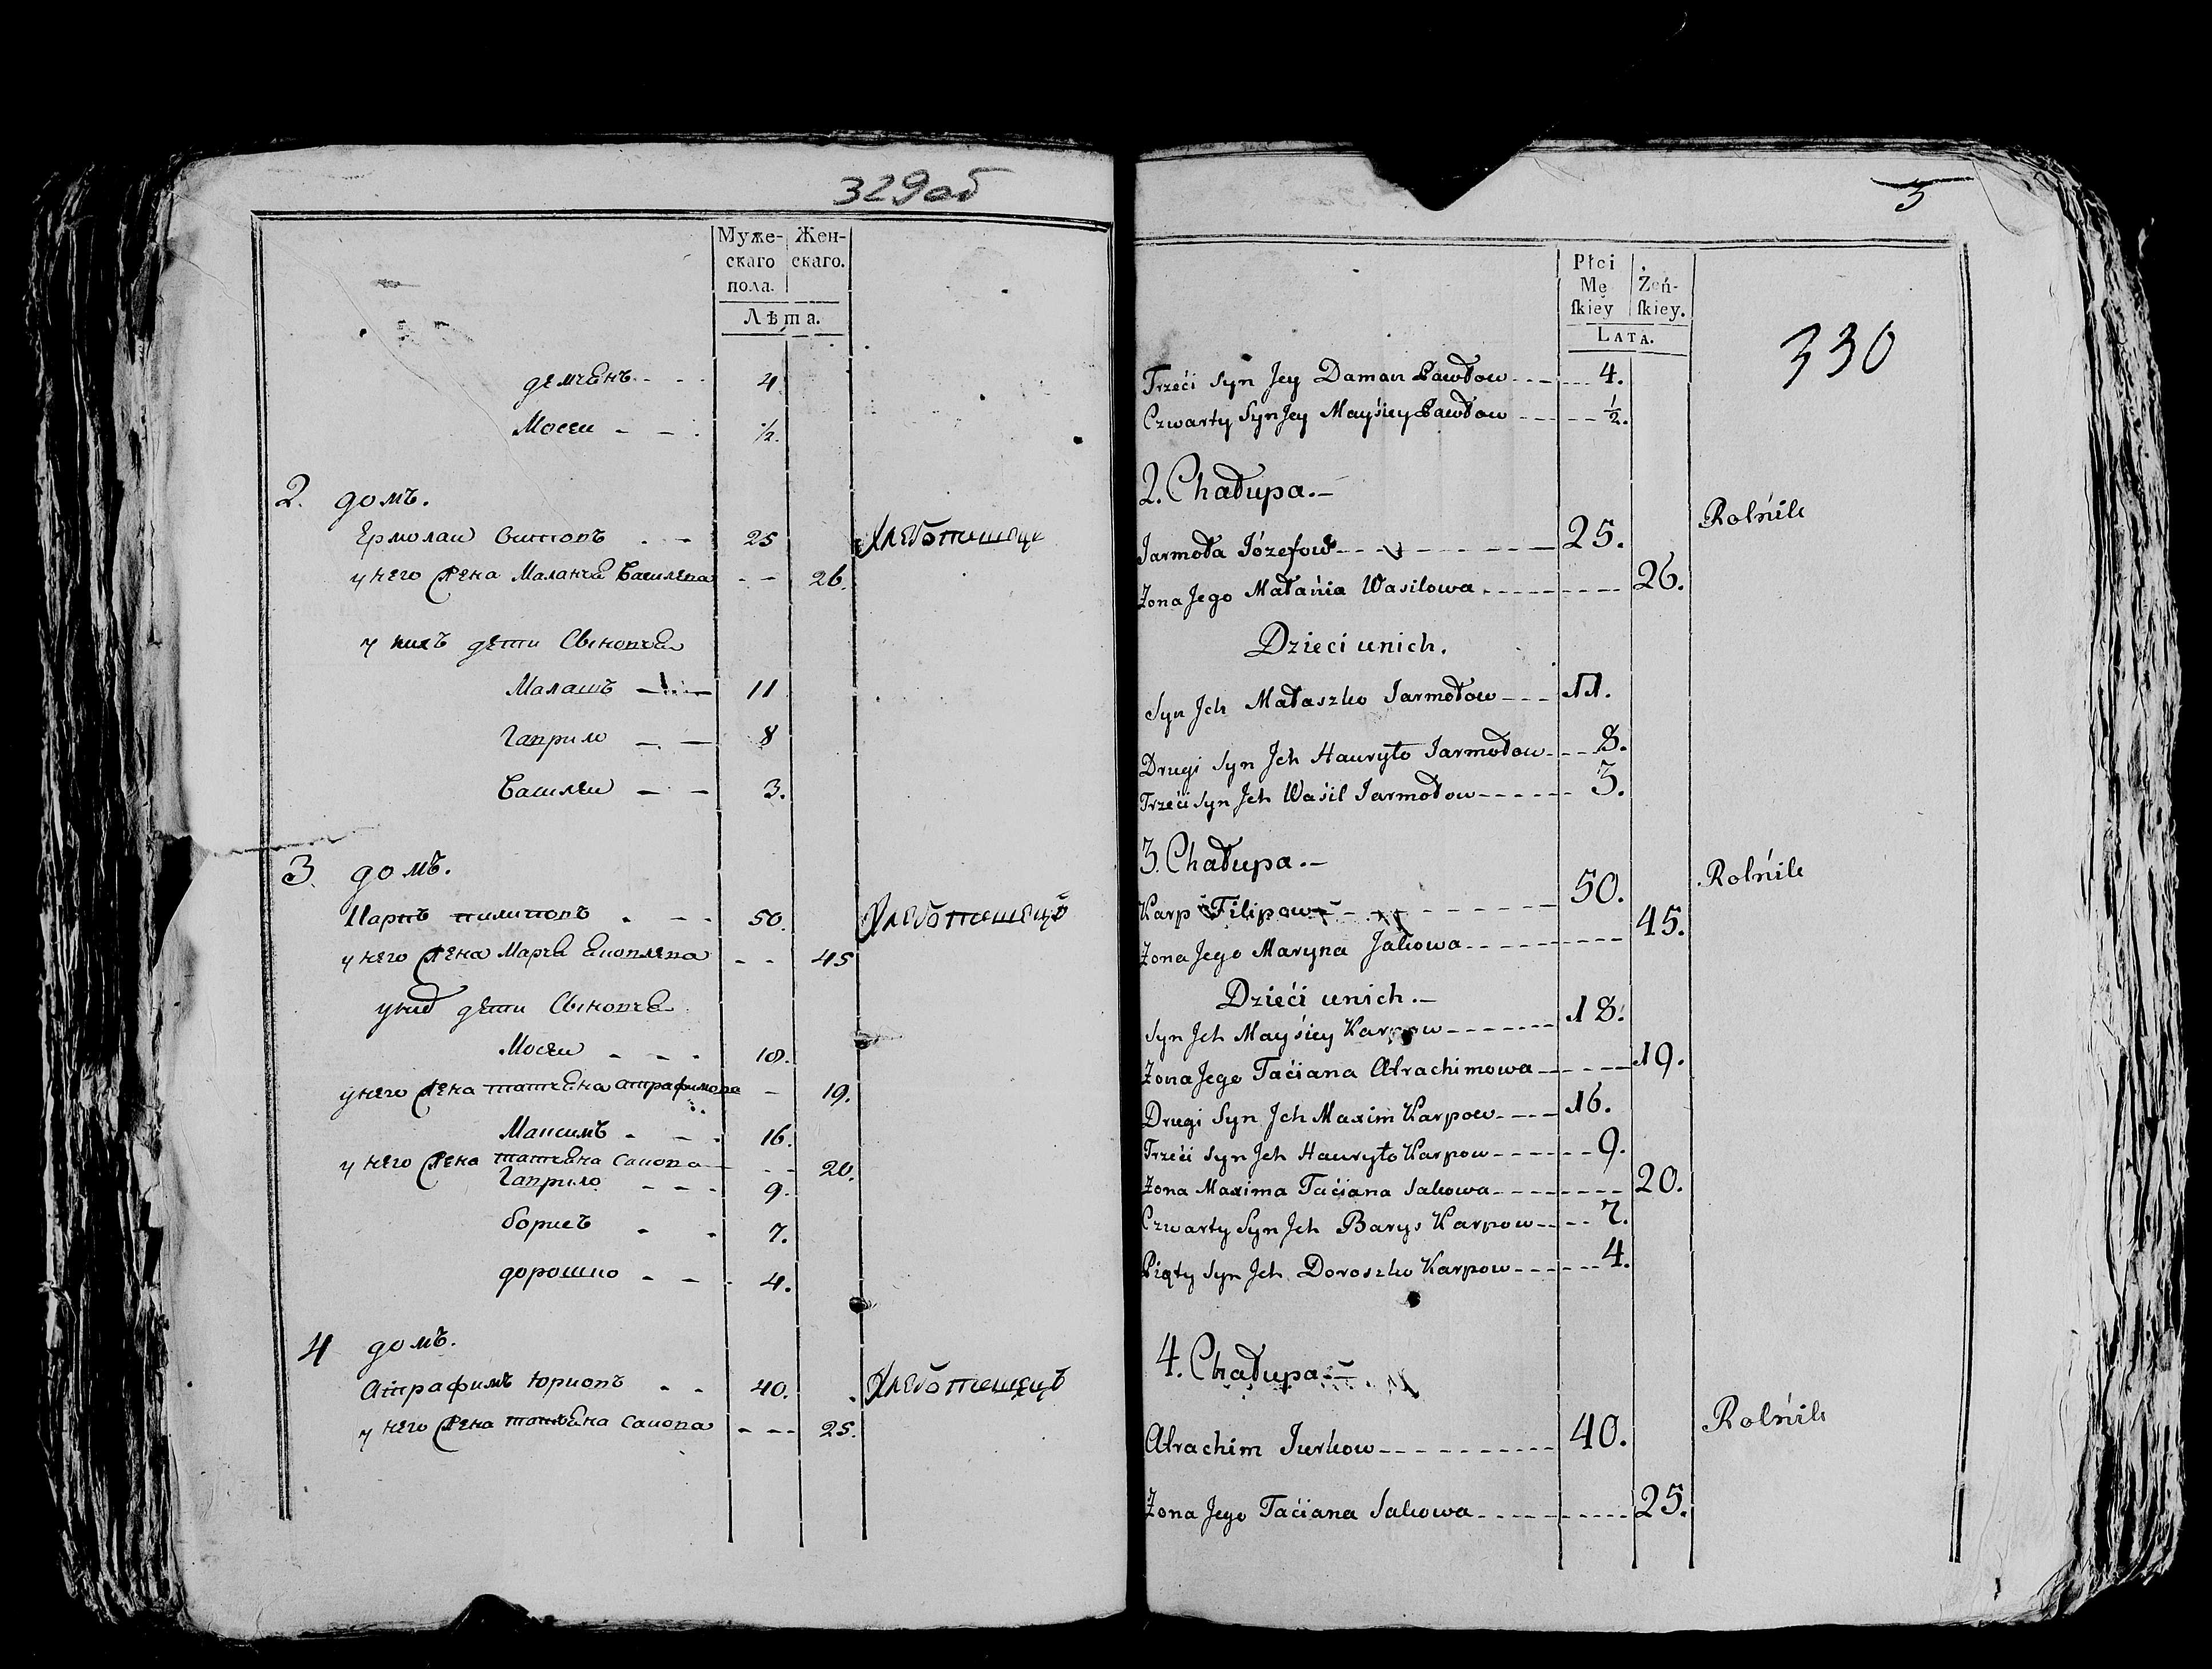 329об
Муже- Жен-
скаго скаго.
пола.
Лѣта.
демьянъ - - 4
Мосеи - - ½.
2. домъ.
Ермолаи - - 25 Хлебопашецъ
у него жена Маланья Василева - - 26.
у нихъ дети Сыновья
Малашъ - - 11
Гаврило - - 8
Василеи - - 3.
3. домъ.
Карпъ Пилиповъ - - 50. Хлебопашецъ
у него жена Марья - - 45
у них дети Сыновья
Мосеи - - - 18.
у него жена татьяна атрафимова - 19.
Максимъ - - - 16.
у него жена татьяна Сакова - - - 20.
Гаврило - - - 9.
борисъ - - 7.
дорошко - - - 4.
4 домъ.
Атрафимъ Юрковъ - - 40. Хлебопашецъ
у него жена татьяна Сакова - - - 25.
3
Płci
Mę Żeń-
ſkiey ſkiey.
LATA.
330
Trzeći Syn Jey Daman Pawłow - - - 4.
Czwarty Syn Jey Mayśiey Pawłow - - - ½.
2. Chałupa.-
Rolńik
Jarmoła Józefow - - - 25.
Żona Jego Małańia Wasilowa - - - 26.
Dzieci u nich.
Syn Jch Małaszko Jarmołow - - - 11.
Drugi Syn Jch Hauryło Jarmołow - - - 8.
Trzeći Syn Jch Waśil Jarmołow - - - 3.
3. Chałupa.-
Rolńik
Karp Filipow - - - 50.
Żona Jego Maryna Jakowa - - - 45.
Dzieći u nich.-
Syn Jch Mayśiey Karpow - - - 18.
Żona Jego Taćiana Atrachimowa - - - 19.
Drugi Syn Jch Maxim Karpow - - - 16.
Trzeći Syn Jch Hauryło Karpow - - - 9.
Żona Maxima Taćiana Sakowa - - - 20.
Czwarty Syn Jch Barys Karpow - - - 7.
Piąty Syn Jch Doroszko Karpow - - - 4.
4. Chałupa.-
Rolńik
Atrachim Jurkow - - - 40.
Żona Jego Taćiana Sakowa - - - 25.